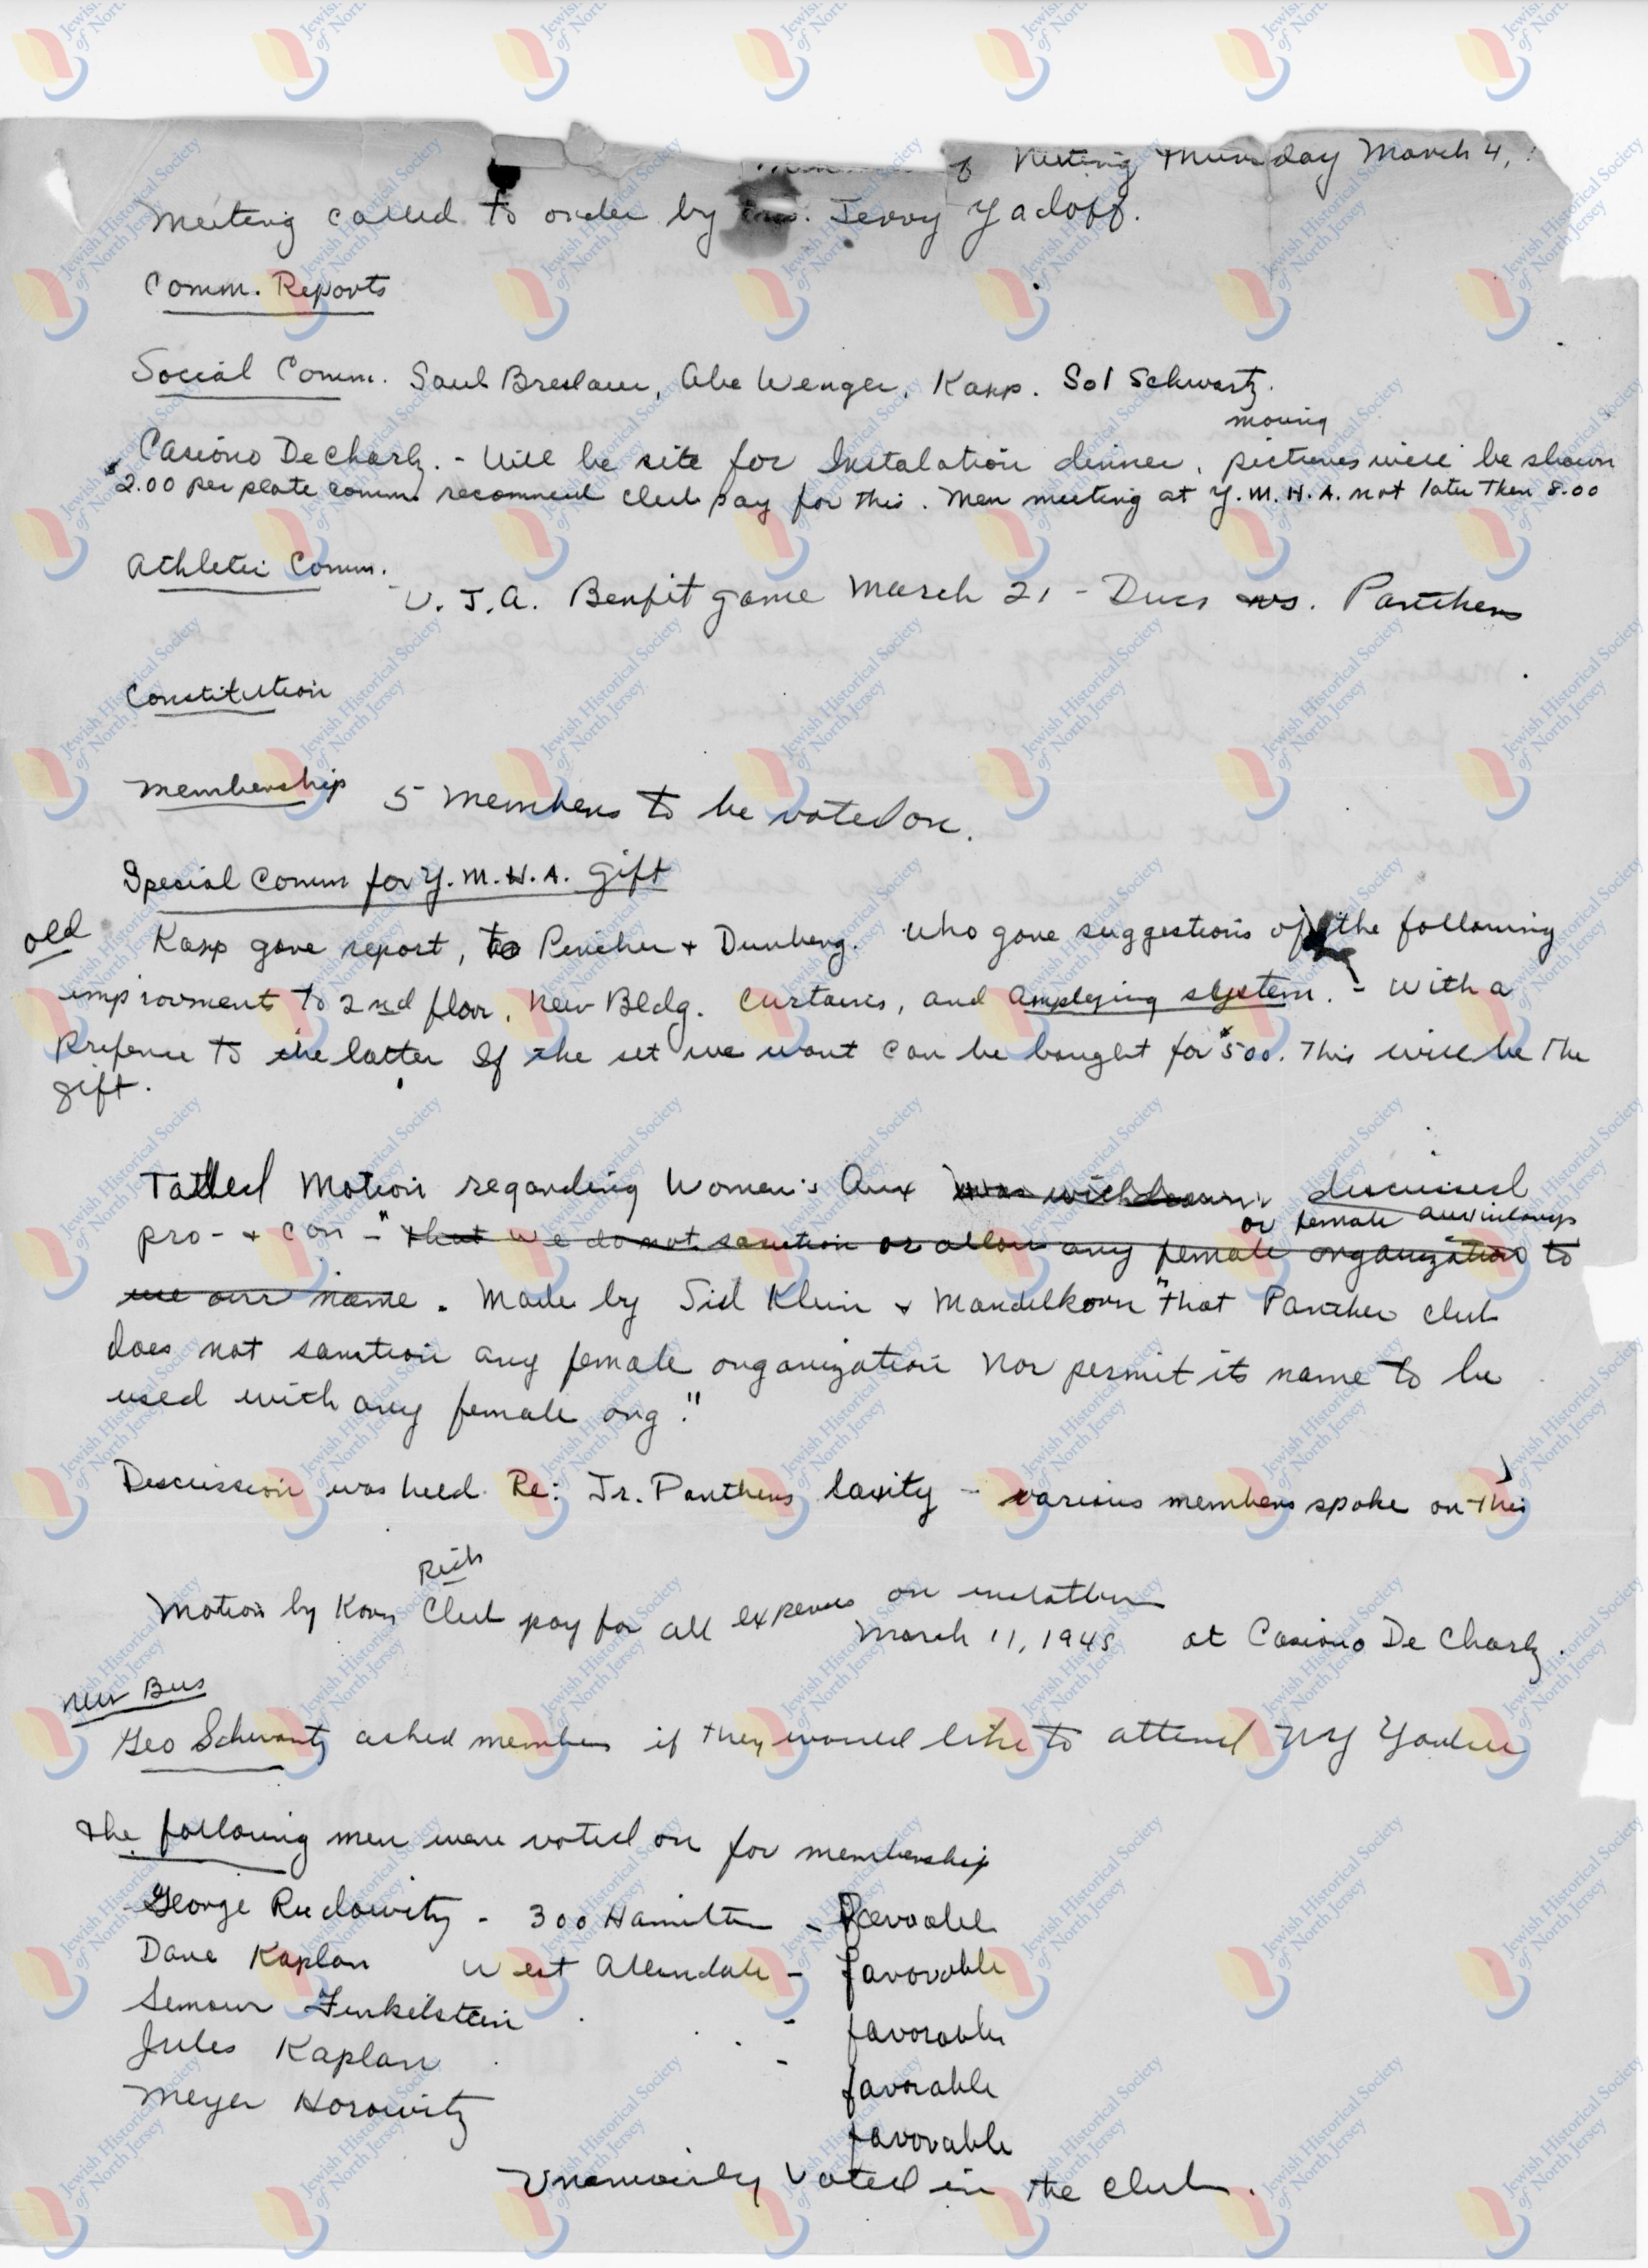 of Meeting Thursday March 4,
Meeting called to order by Jerry Yadoff.
Comm. Reports
Social Comm. Saul Breslauer, Abe Wenger, Karp. Sol Schwartz.
moving
Casiono De Charlz. - Will be site for Instalation dinner, pictures will be shown
$2.00 per plate comm. recommend club pay for this. Men meeting at Y.M.H.A. not later then 8.00
Athletic Comm.
U.J.A. Benfit game March 21 - Ducs vs. Panthers
Constitution
Membership 5 Members to be voted on.
Special Comm for Y.M.H.A. Gift
old Karp gave report, to & Dunberg. who gave suggestions of the following
improvment to 2nd floor, New Bldg. Curtains, and amplying system. - with a
Prefence to the latter If the set we want can be bought for $500. This will be the
gift.
Tabled Motion regarding Women's Aux was withdrawn discussed
or female auxiliarys
pro- & con - "that we do not sanction or allow any female organization to
use our name. Made by Sid Klein & Mandelkorn "that Panther club
does not sanction any female organization nor permit its name to be
used with any female org."
Discussion was held Re: Jr. Panthers laxity - various members spoke on this
Rich
Motion by Korn Club pay for all expenses on
March 11, 1948 at Casiono De Charlz.
New Bus
Geo Schwartz asked members if they would like to attend NY Yankee
the following men were voted on for membership
George Rudowitz - 300 Hamilton - favorable
Dave Kaplan West Allendale - favorable
Semour Finkelstein - favorable
Jules Kaplan - favorable
Meyer Horowitz favorable
Unamously voted in the club.
Jewish Historical Society
of North Jersey